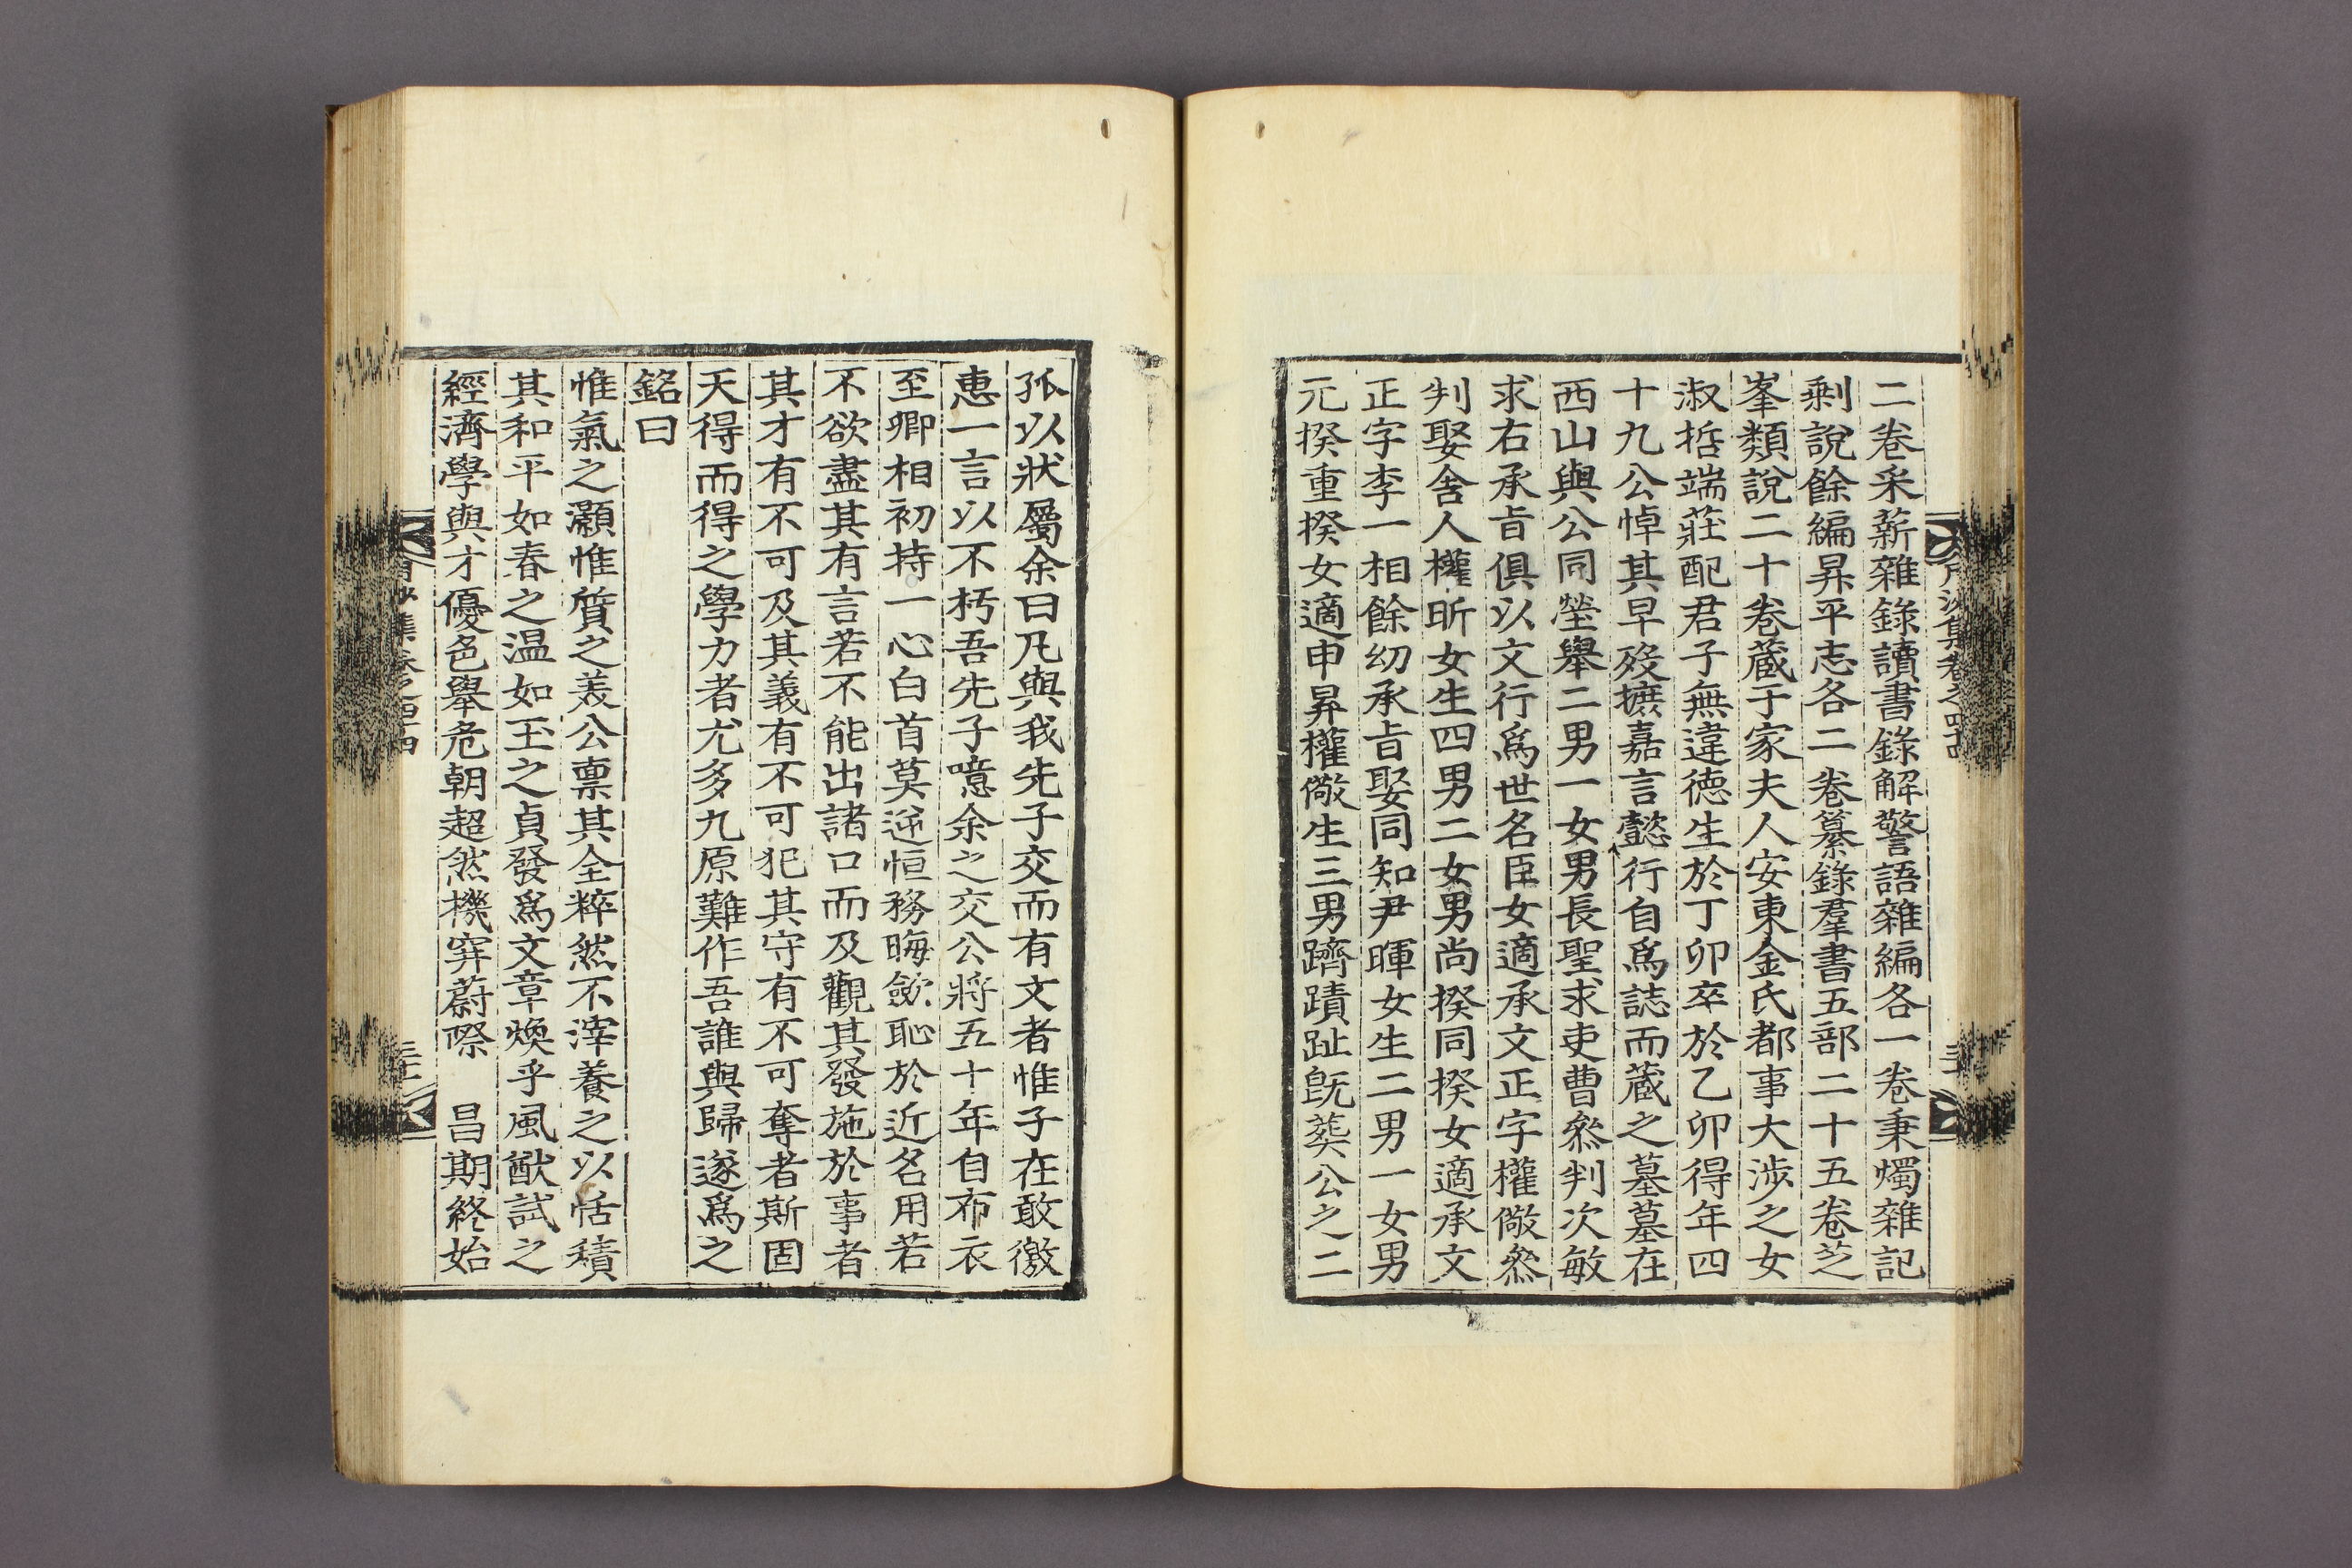 二卷采薪雜錄讀書錄解警語雜編各一卷秉燭雜記
剩說餘編昇平志各二卷纂錄羣書五部二十五卷芝
峯類說二十卷藏于家夫人安東金氏都事大涉之女
淑哲端莊配君子無違德生於丁卯卒於乙卯得年四
十九公悼其早歿摭嘉言懿行自爲誌而藏之墓墓在
西山與公同塋擧二男一女男長聖求吏曹叅判次敏
求右承旨俱以文行爲世名臣女適承文正字權儆叅
判娶舍人權昕女生四男二女男尚揆同揆女適承文
正字李一相餘幼承旨娶同知尹暉女生二男一女男
元揆重揆女適申昇權儆生三男躋蹟趾旣葬公之二
孤以狀屬余曰凡與我先子交而有文者惟子在敢徼
惠一言以不朽吾先子噫余之交公將五十年自布衣
至卿相初持一心白首莫逆恒務晦斂恥於近名用若
不欲盡其有言若不能出諸口而及觀其發施於事者
其才有不可及其義有不可犯其守有不可奪者斯固
天得而得之學力者尤多九原難作吾誰與歸遂爲之
銘曰
惟氣之灝惟質之美公禀其全粹然不滓養之以恬積
其和平如春之温如玉之貞發爲文章煥乎風猷試之
經濟學與才優色舉危朝超然機穽蔚際 昌期終始